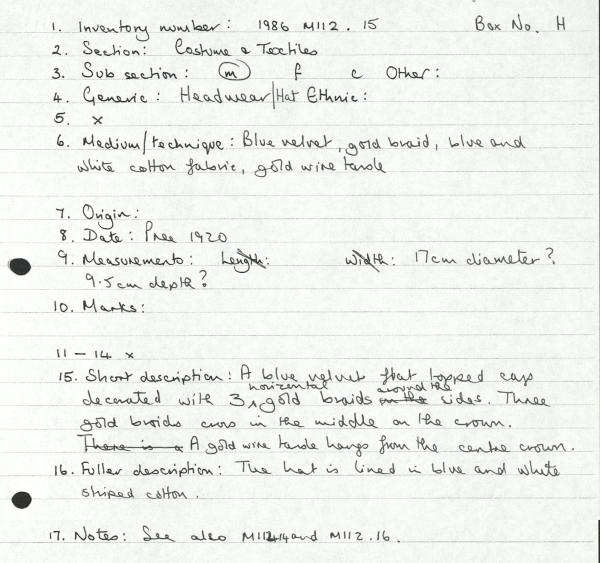 1. Inventory number: 1986 M112.15 Box No. H
2. Section: Costume & Textiles
3. Sub section: m f c Other:
4. Generic: Headwear/Hat Ethnic:
5. x
6. Medium/technique: Blue velvet, gold braid, blue and
white cotton fabric, gold wire tassle
7. Origin:
8. Date: Pree 1920
9. Measurements: Length: Width: 17cm diameter?
9.5cm depth?
10. Marks:
11 - 14 x
15. Short description: A blue velvet flat topped cap
horizontal around the
decorated with 3 gold braids on the sides. Three
gold braids cross in the middle on the crown.
There is a A gold wire tassle hangs from the centre crown.
16. Fuller description: The hat is lined in blue and white
striped cotton.
17. Notes: See also and M112.16.